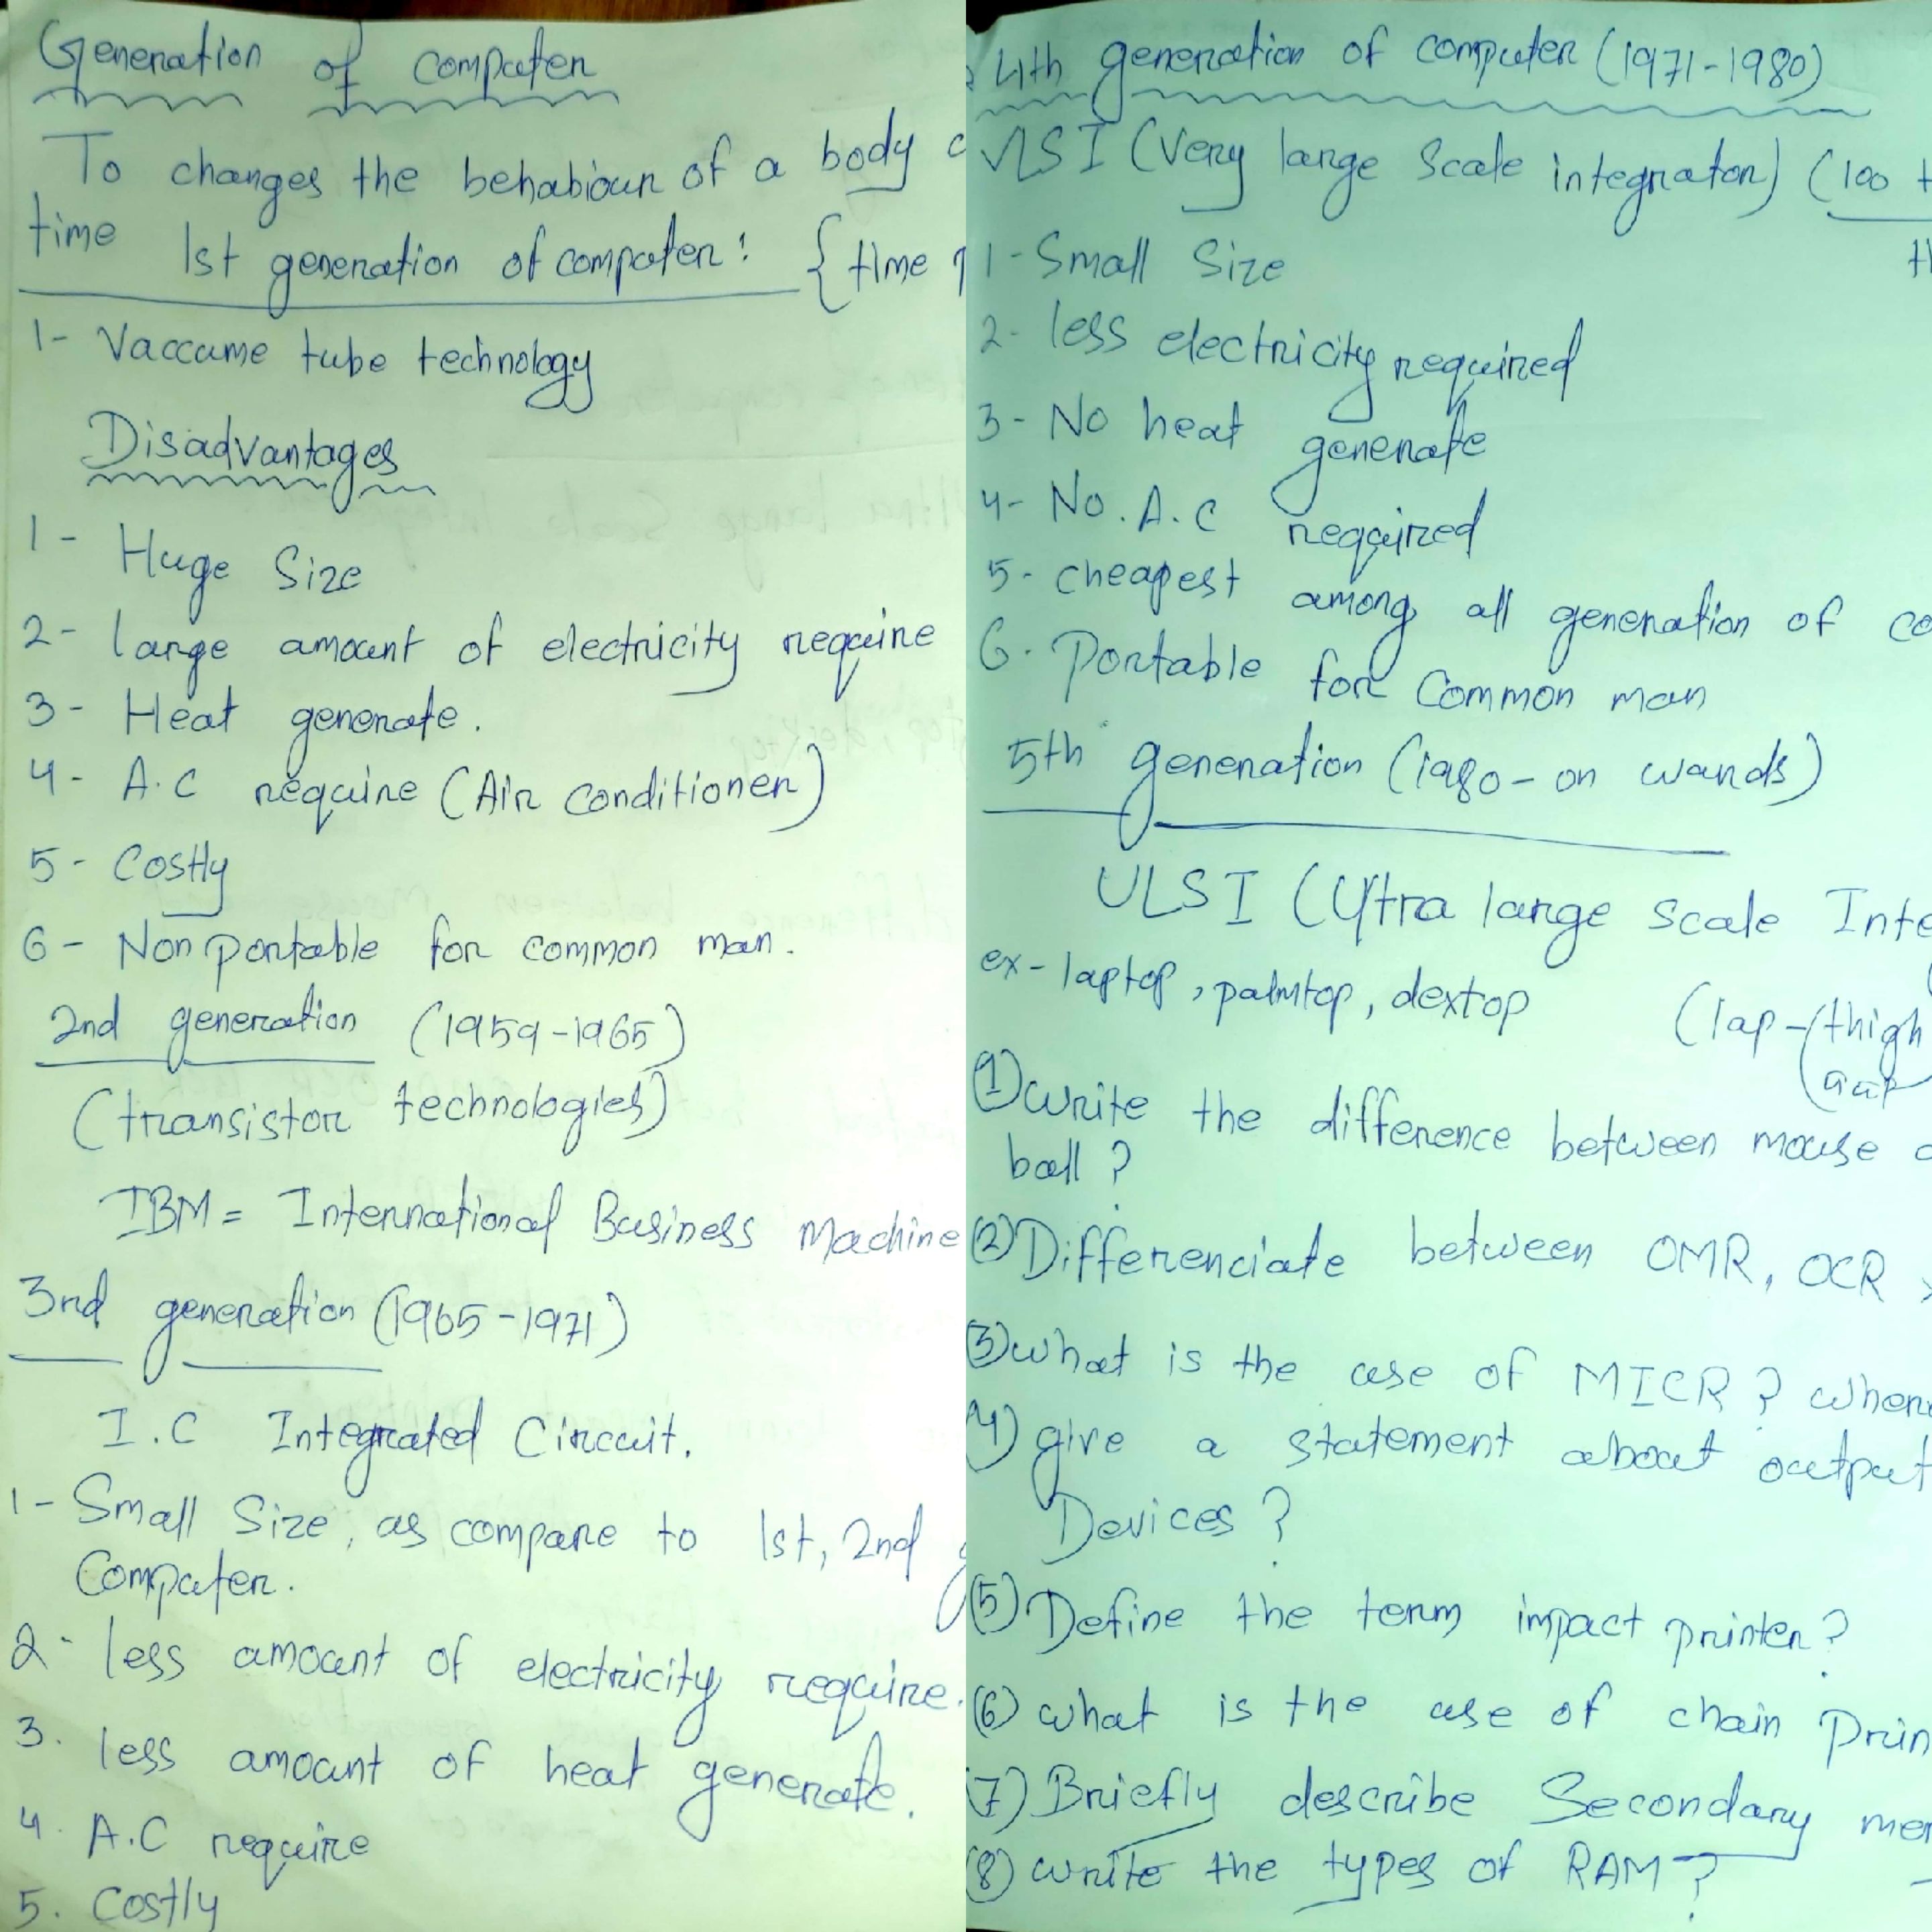 Generation of computer
To changes the behabiour of a body
time 1st generation of computer: { time
1- Vaccume tube technology
Disadvantages
1- Huge Size
2- large amount of electricity require
3- Heat generate.
4- A.C require (Air conditioner)
5- Costly
6- Non portable for common man.
2nd generation (1959-1965)
(transistor technologies)
IBM = International Business Machine
3rd generation (1965-1971)
I.C Integrated Circuit.
1- Small Size, as compare to 1st, 2nd
Computer.
2- less amount of electricity require.
3. less amount of heat generate.
4. A.C require
5. Costly
4th generation of computer (1971-1980)
VLSI (Very large Scale integraton) (100
1- Small Size
2- less electricity required
3- No heat generate
4- No. A.C required
5- cheapest among all generation of
6. Portable for Common man
5th generation (1980-on wards)
ULSI (Ultra large scale
ex- laptop, palmtop, dextop (lap-(thigh
(1) write the difference between mouse
ball?
(2) Differenciate between OMR, OCR
(3) what is the use of MICR?
(4) give a statement about output
Devices?
(5) Define the term impact printer?
(6) what is the use of chain
(7) Briefly describe Secondary
(8) write the types of RAM?